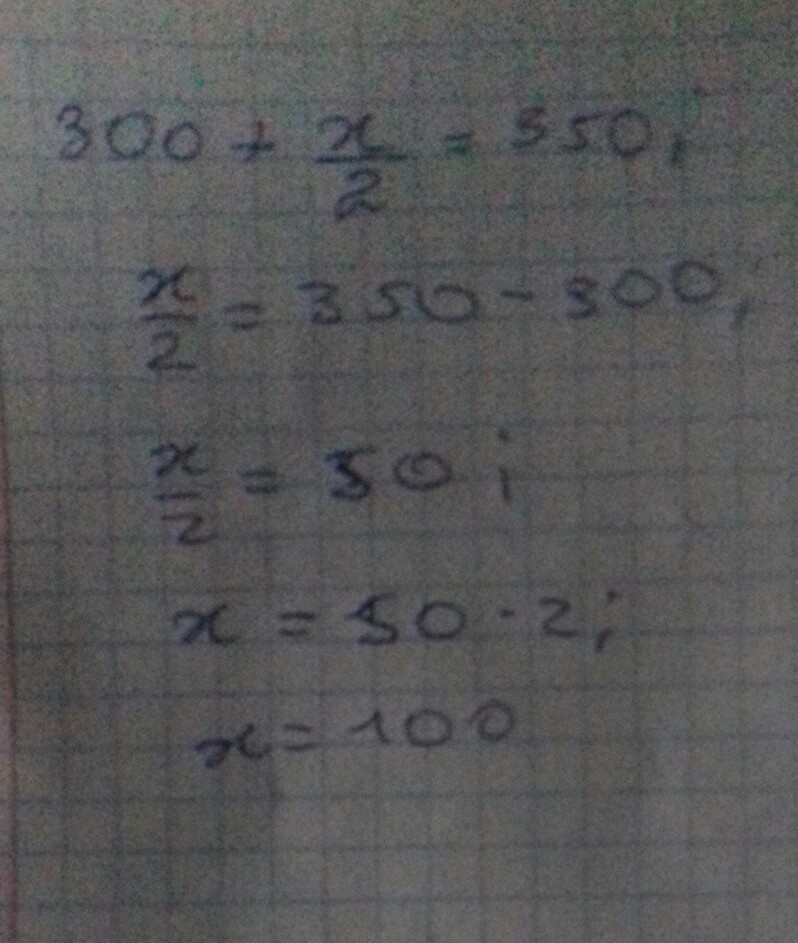 300 + x/2 = 350;
x/2 = 350 - 300;
x/2 = 50;
x = 50 · 2;
x = 100